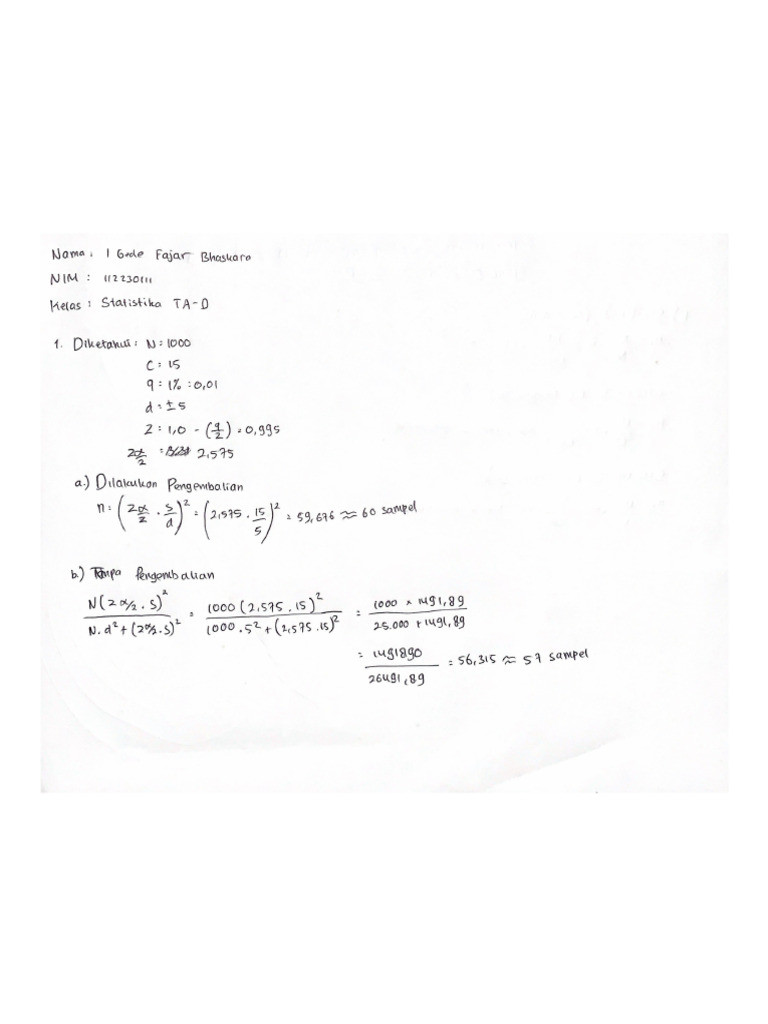 Nama : I Gede Fajar Bhaskara
NIM : 112230111
Kelas : Statistika TA-D
1. Diketahui : N = 1000
C = 15
q = 1% = 0,01
d = ± 5
Z = 1,0 - (q/2) = 0,995
Zα/2 = 2,575
a.) Dilakukan Pengembalian
n = (Zα/2 . S/d)² = (2,575 . 15/5)² = 59,676 ≈ 60 sampel
b.) Tanpa Pengembalian
N(Zα/2 . S)² / N.d² + (Zα/2 . S)² = 1000 (2,575 . 15)² / 1000 . 5² + (2,575 . 15)² = 1000 × 1491,89 / 25.000 + 1491,89
= 1491890 / 26491,89 = 56,315 ≈ 57 sampel